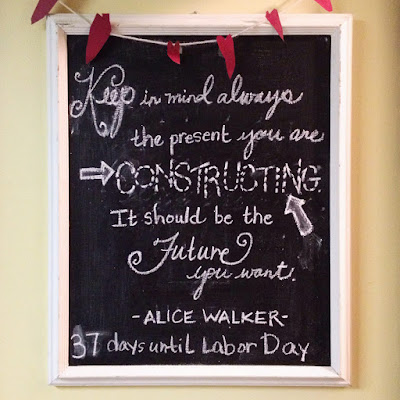 Keep in mind always
the present you are
CONSTRUCTING.
It should be the
Future
you want.
-ALICE WALKER-
37 days until Labor Day